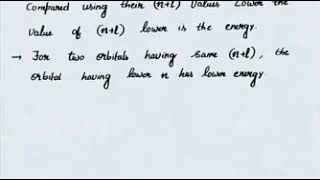 Compared using their (n+l) values Lower the
value of (n+l) lower is the energy.
→ For two orbitals having same (n+l), the
orbital having lower n has lower energy